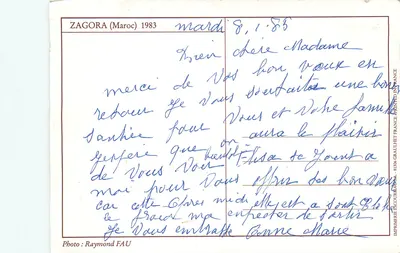 ZAGORA (Maroc) 1983
mardi 8.1.85
Bien chère Madame
merci de Vos bon vœux en
retour Je Vous souhaite une bonne
Santée pour Vous et Votre famille
J'espère que on aura le plaisir
de Vous Voir bientôt Elisa se Joint a
moi pour Vous offrir ses bon vœux
car cette
le froid ma empecher de sortir
Je Vous embrasse Anne Marie
Photo : Raymond FAU